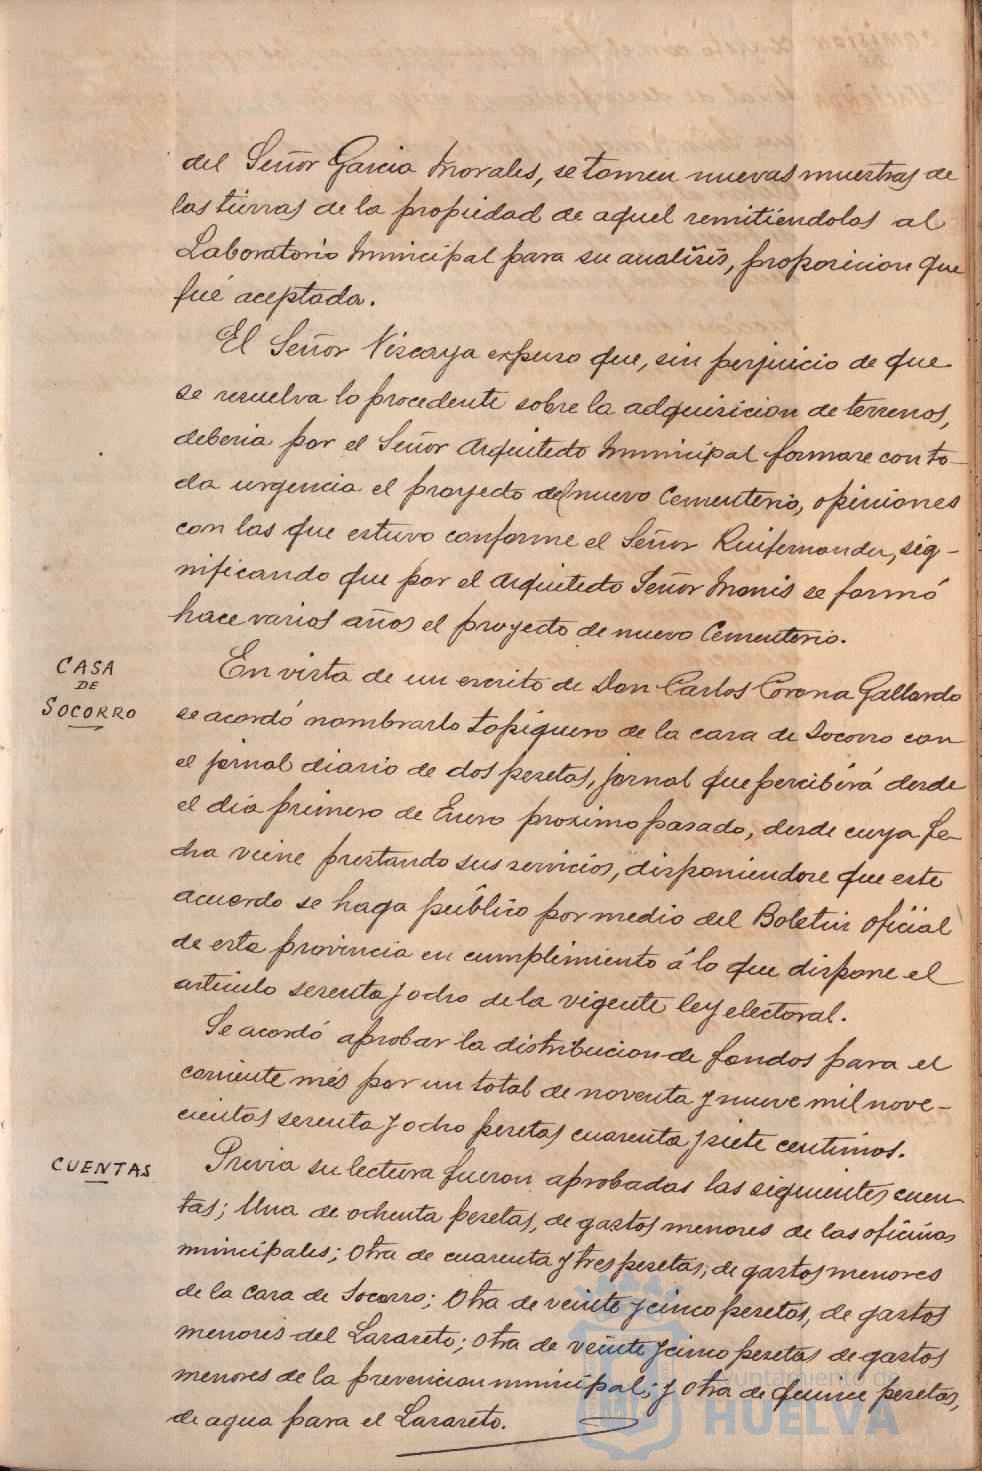 del Señor Garcia Morales, se tomen nuevas muestras de
las tierras de la propiedad de aquel remitiéndolas al
Laboratorio Municipal para su analisis, proposicion que
fué aceptada.
El Señor Vizcaya expuso que, sin perjuicio de que
se resuelva lo procedente sobre la adquisicion de terrenos,
deberia por el Señor Arquitecto Municipal formarse con to-
da urgencia el proyecto del nuevo Cementerio, opiniones
con las que estuvo conforme el Señor Ruifernandez, sig-
nificando que por el Arquitecto Señor Monis se formó
hace varios años el proyecto de nuevo Cementerio.
CASA
DE
SOCORRO
En vista de un escrito de Don Carlos Corona Gallardo
se acordó nombrarlo topiquero de la casa de Socorro con
el jornal diario de dos pesetas, jornal que percibirá desde
el dia primero de Enero proximo pasado, desde cuya fe-
cha viene prestando sus servicios, disponiendose que este
acuerdo se haga público por medio del Boletin oficial
de esta provincia en cumplimiento á lo que dispone el
articulo sesenta y ocho de la vigente ley electoral.
Se acordó aprobar la distribucion de fondos para el
corriente més por un total de noventa y nueve mil nove-
cientas sesenta y ocho pesetas cuarenta y siete centimos.
CUENTAS
Previa su lectura fueron aprobadas las siguientes cuen-
tas; Una de ochenta pesetas, de gastos menores de las oficinas
municipales; Otra de cuarenta y tres pesetas, de gastos menores
de la Casa de Socorro; Otra de veinte y cinco pesetas, de gastos
menores del Lazareto; otra de veinte y cinco pesetas de gastos
menores de la prevencion municipal; y otra de quince pesetas,
de agua para el Lazareto.
Ayuntamiento de
HUELVA